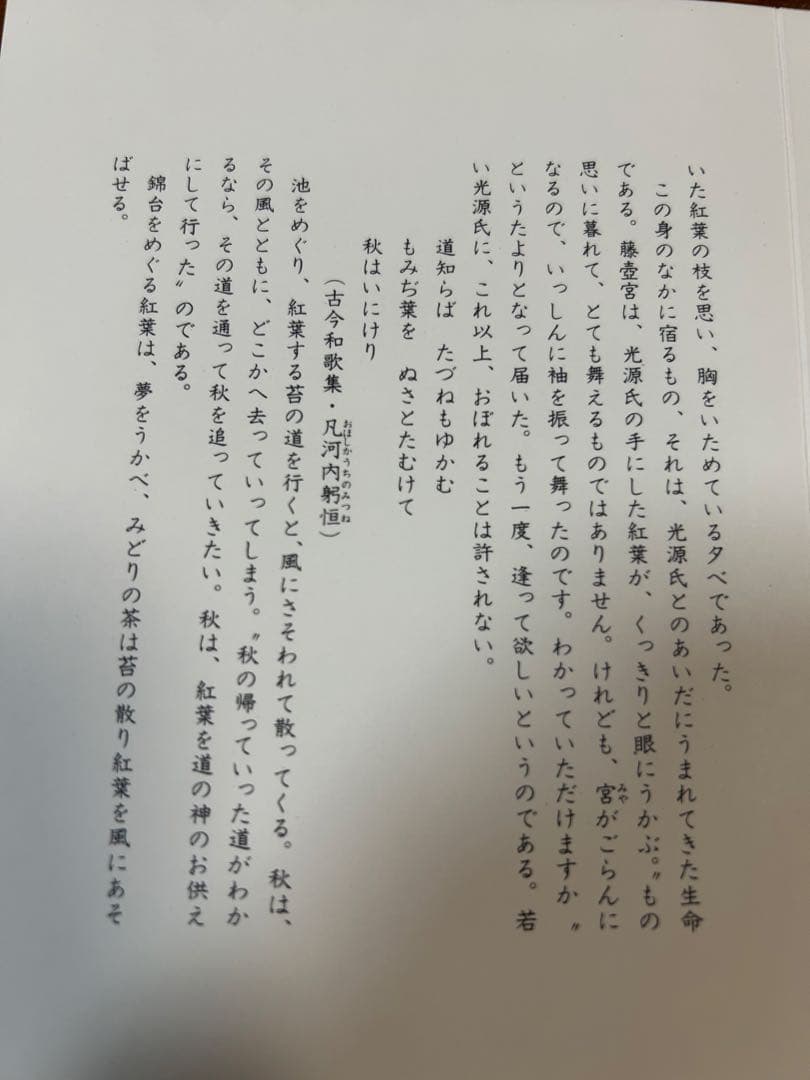 いた紅葉の枝を思い、胸をいためている夕べであった。
この身のなかに宿るもの、それは、光源氏とのあいだにうまれてきた生命
である。藤壺宮は、光源氏の手にした紅葉が、くっきりと眼にうかぶ。〝もの
思いに暮れて、とても舞えるものではありません。けれども、宮がごらんに
みや
なるので、いっしんに袖を振って舞ったのです。わかっていただけますか〟
というたよりとなって届いた。もう一度、逢って欲しいというのである。若
い光源氏に、これ以上、おぼれることは許されない。
道知らば　たづねもゆかむ
もみぢ葉を　ぬさとたむけて
秋はいにけり
（古今和歌集・凡河内躬恒）
おほしかうちのみつね
池をめぐり、紅葉する苔の道を行くと、風にさそわれて散ってくる。秋は、
その風とともに、どこかへ去っていってしまう。〝秋の帰っていった道がわか
るなら、その道を通って秋を追っていきたい。秋は、紅葉を道の神のお供え
にして行った〟のである。
錦台をめぐる紅葉は、夢をうかべ、みどりの茶は苔の散り紅葉を風にあそ
ばせる。